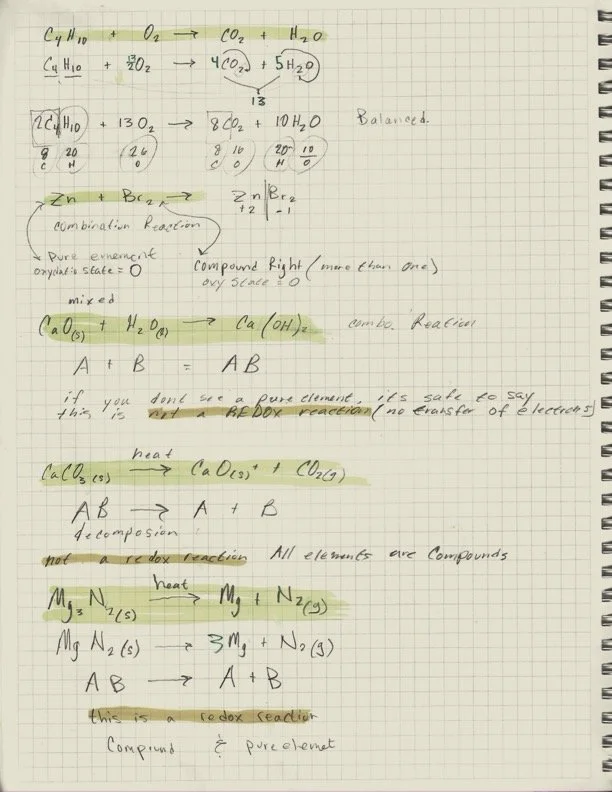 C4H10 + O2 → CO2 + H2O
C4H10 + 13/2 O2 → 4CO2 + 5H2O
13
2C4H10 + 13O2 → 8CO2 + 10H2O Balanced.
8 20 26 8 16 20 10
C H O C O H O
Zn + Br2 → Zn | Br2
+2 -1
combination Reaction
Pure enement
oxydatio state = 0
Compound Right (more than one)
oxy state = 0
mixed
CaO(s) + H2O(l) → Ca(OH)2 combo. Reation
A + B = AB
if you dont see a pure element, its safe to say
this is not a REDOx reaction (no transfer of electrons)
heat
CaCO3(s) → CaO(s)+ + CO2(g)
AB → A + B
decomposion
not a redox reaction All elements are Compounds
heat
Mg3 N2(s) → Mg + N2(g)
Mg N2(s) → 3Mg + N2(g)
AB → A + B
this is a redox reaction
Compound & pure elemet